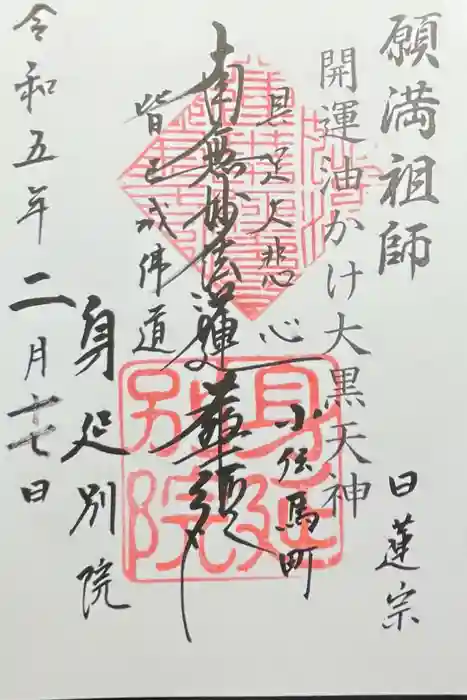 願満祖師
日蓮宗
開運油かけ大黒天神
具足大悲心
小伝馬町
南無妙法蓮華経
皆已成佛道
身延別院
令和五年二月十七日
身延別院